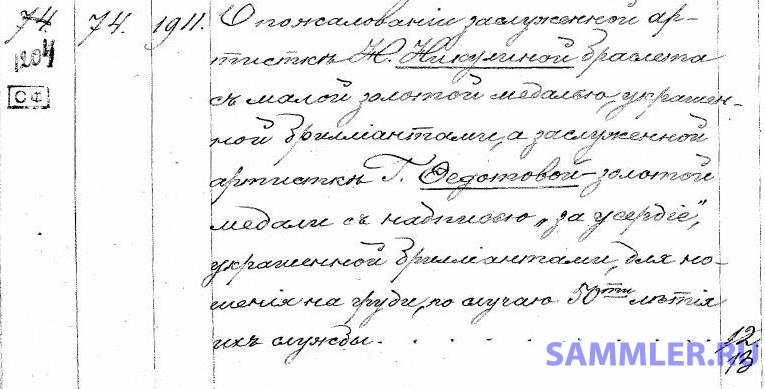 74. 74. 1911. О пожалованіи заслуженной ар-
1204 тисткѣ Н. Никулиной браслета
СФ съ малой золотой медалью, украшен-
ной брилліантами, а заслуженной
артисткѣ Г. Ѳедотовой - золотой
медали съ надписью „за усердіе",
украшенной брилліантами, для но-
шенія на груди, по случаю 50ти лѣтія
ихъ службы. . . . . . . . . . 12
13
SAMMLER.RU